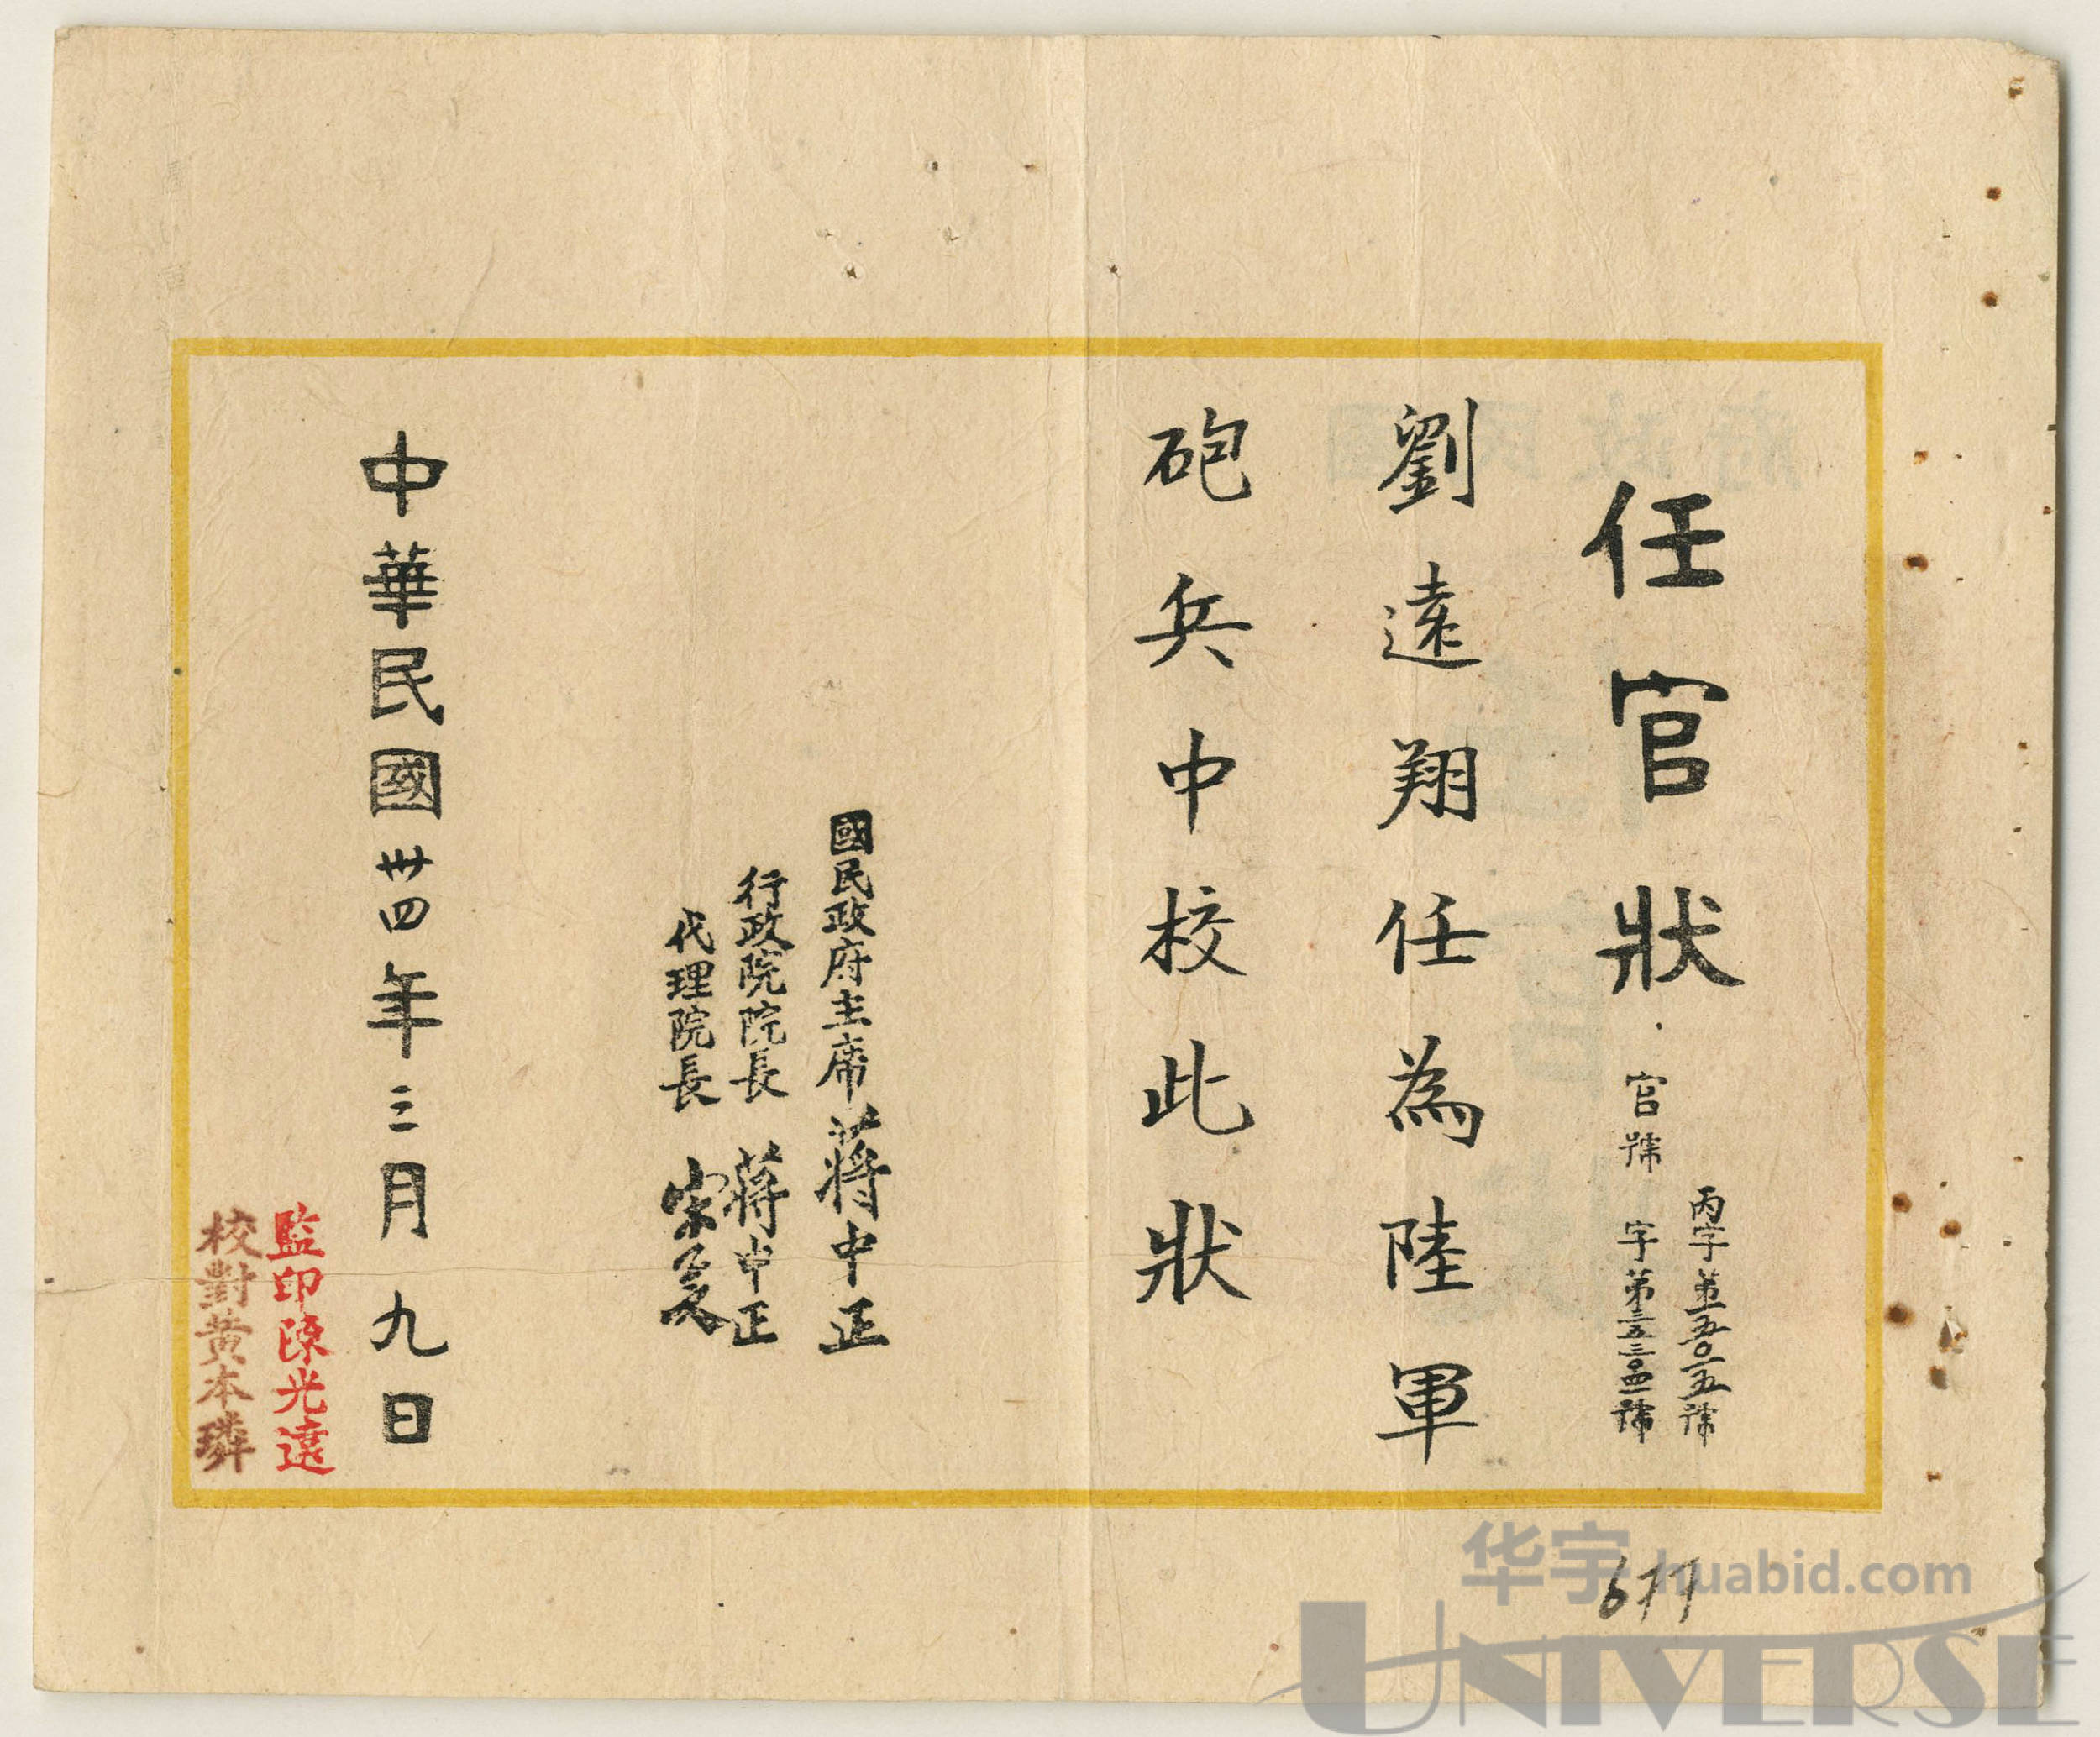 任官狀
丙字第五〇一五號
官號 字第三五三〇四號
劉遠翔任為陸軍
砲兵中校此狀
國民政府主席蔣中正
行政院院長 蔣中正
代理院長 宋子文
中華民國卅四年三月九日
監印陳光遠
校對黃本璘
677
华宇 huabid.com
UNIVERSE